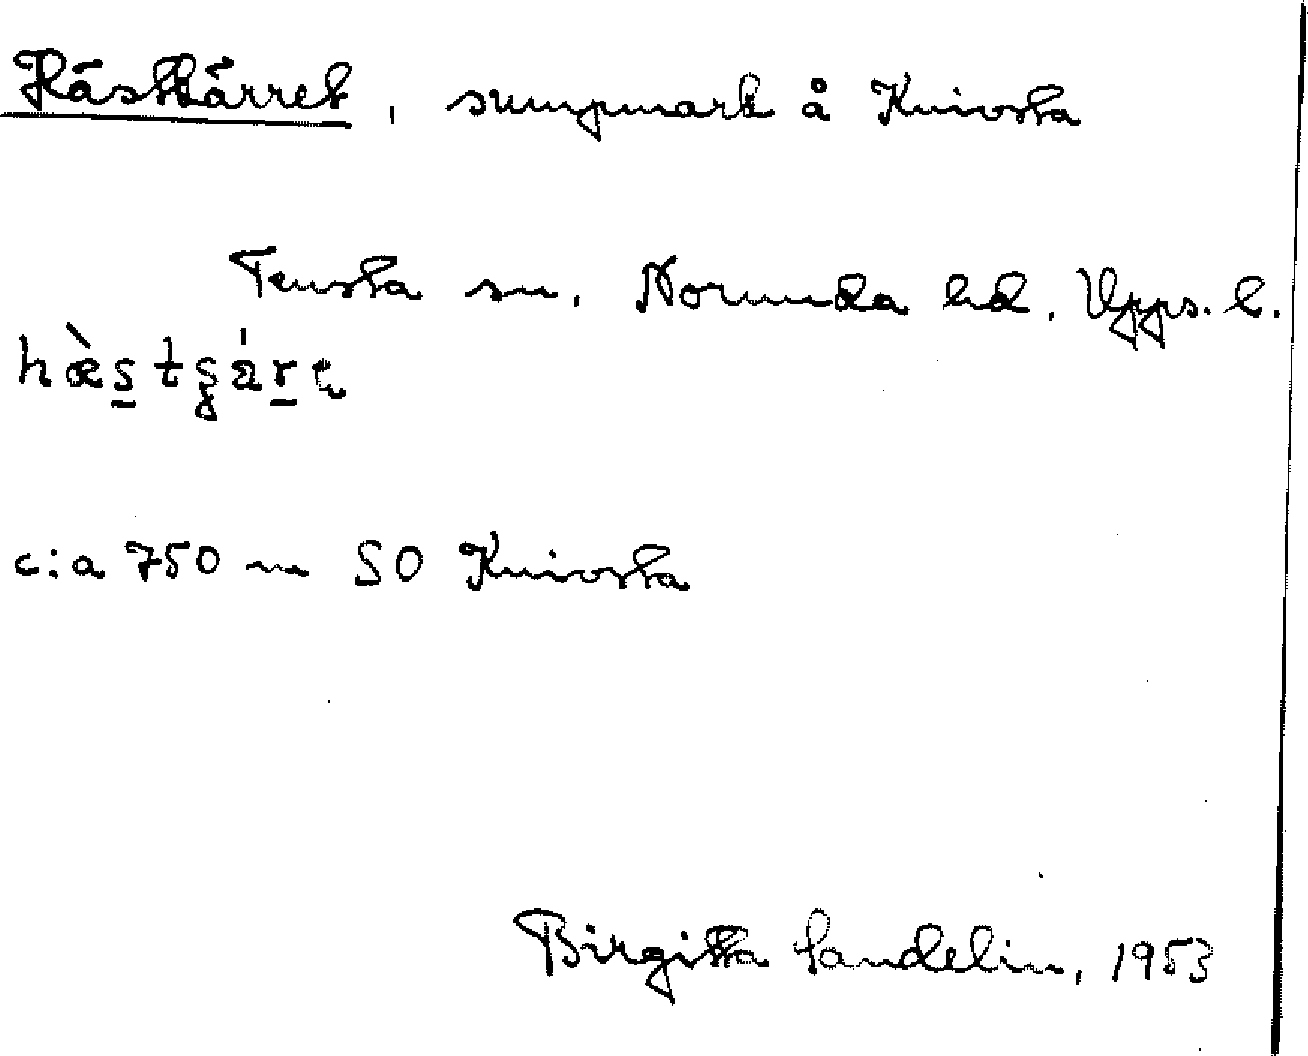 Hästkärret, sumpmark å Knivsta
Tensta sn. Norunda hd. Upps. l.
c:a 750 m SO Knivsta
Birgitta Sandelin, 1953